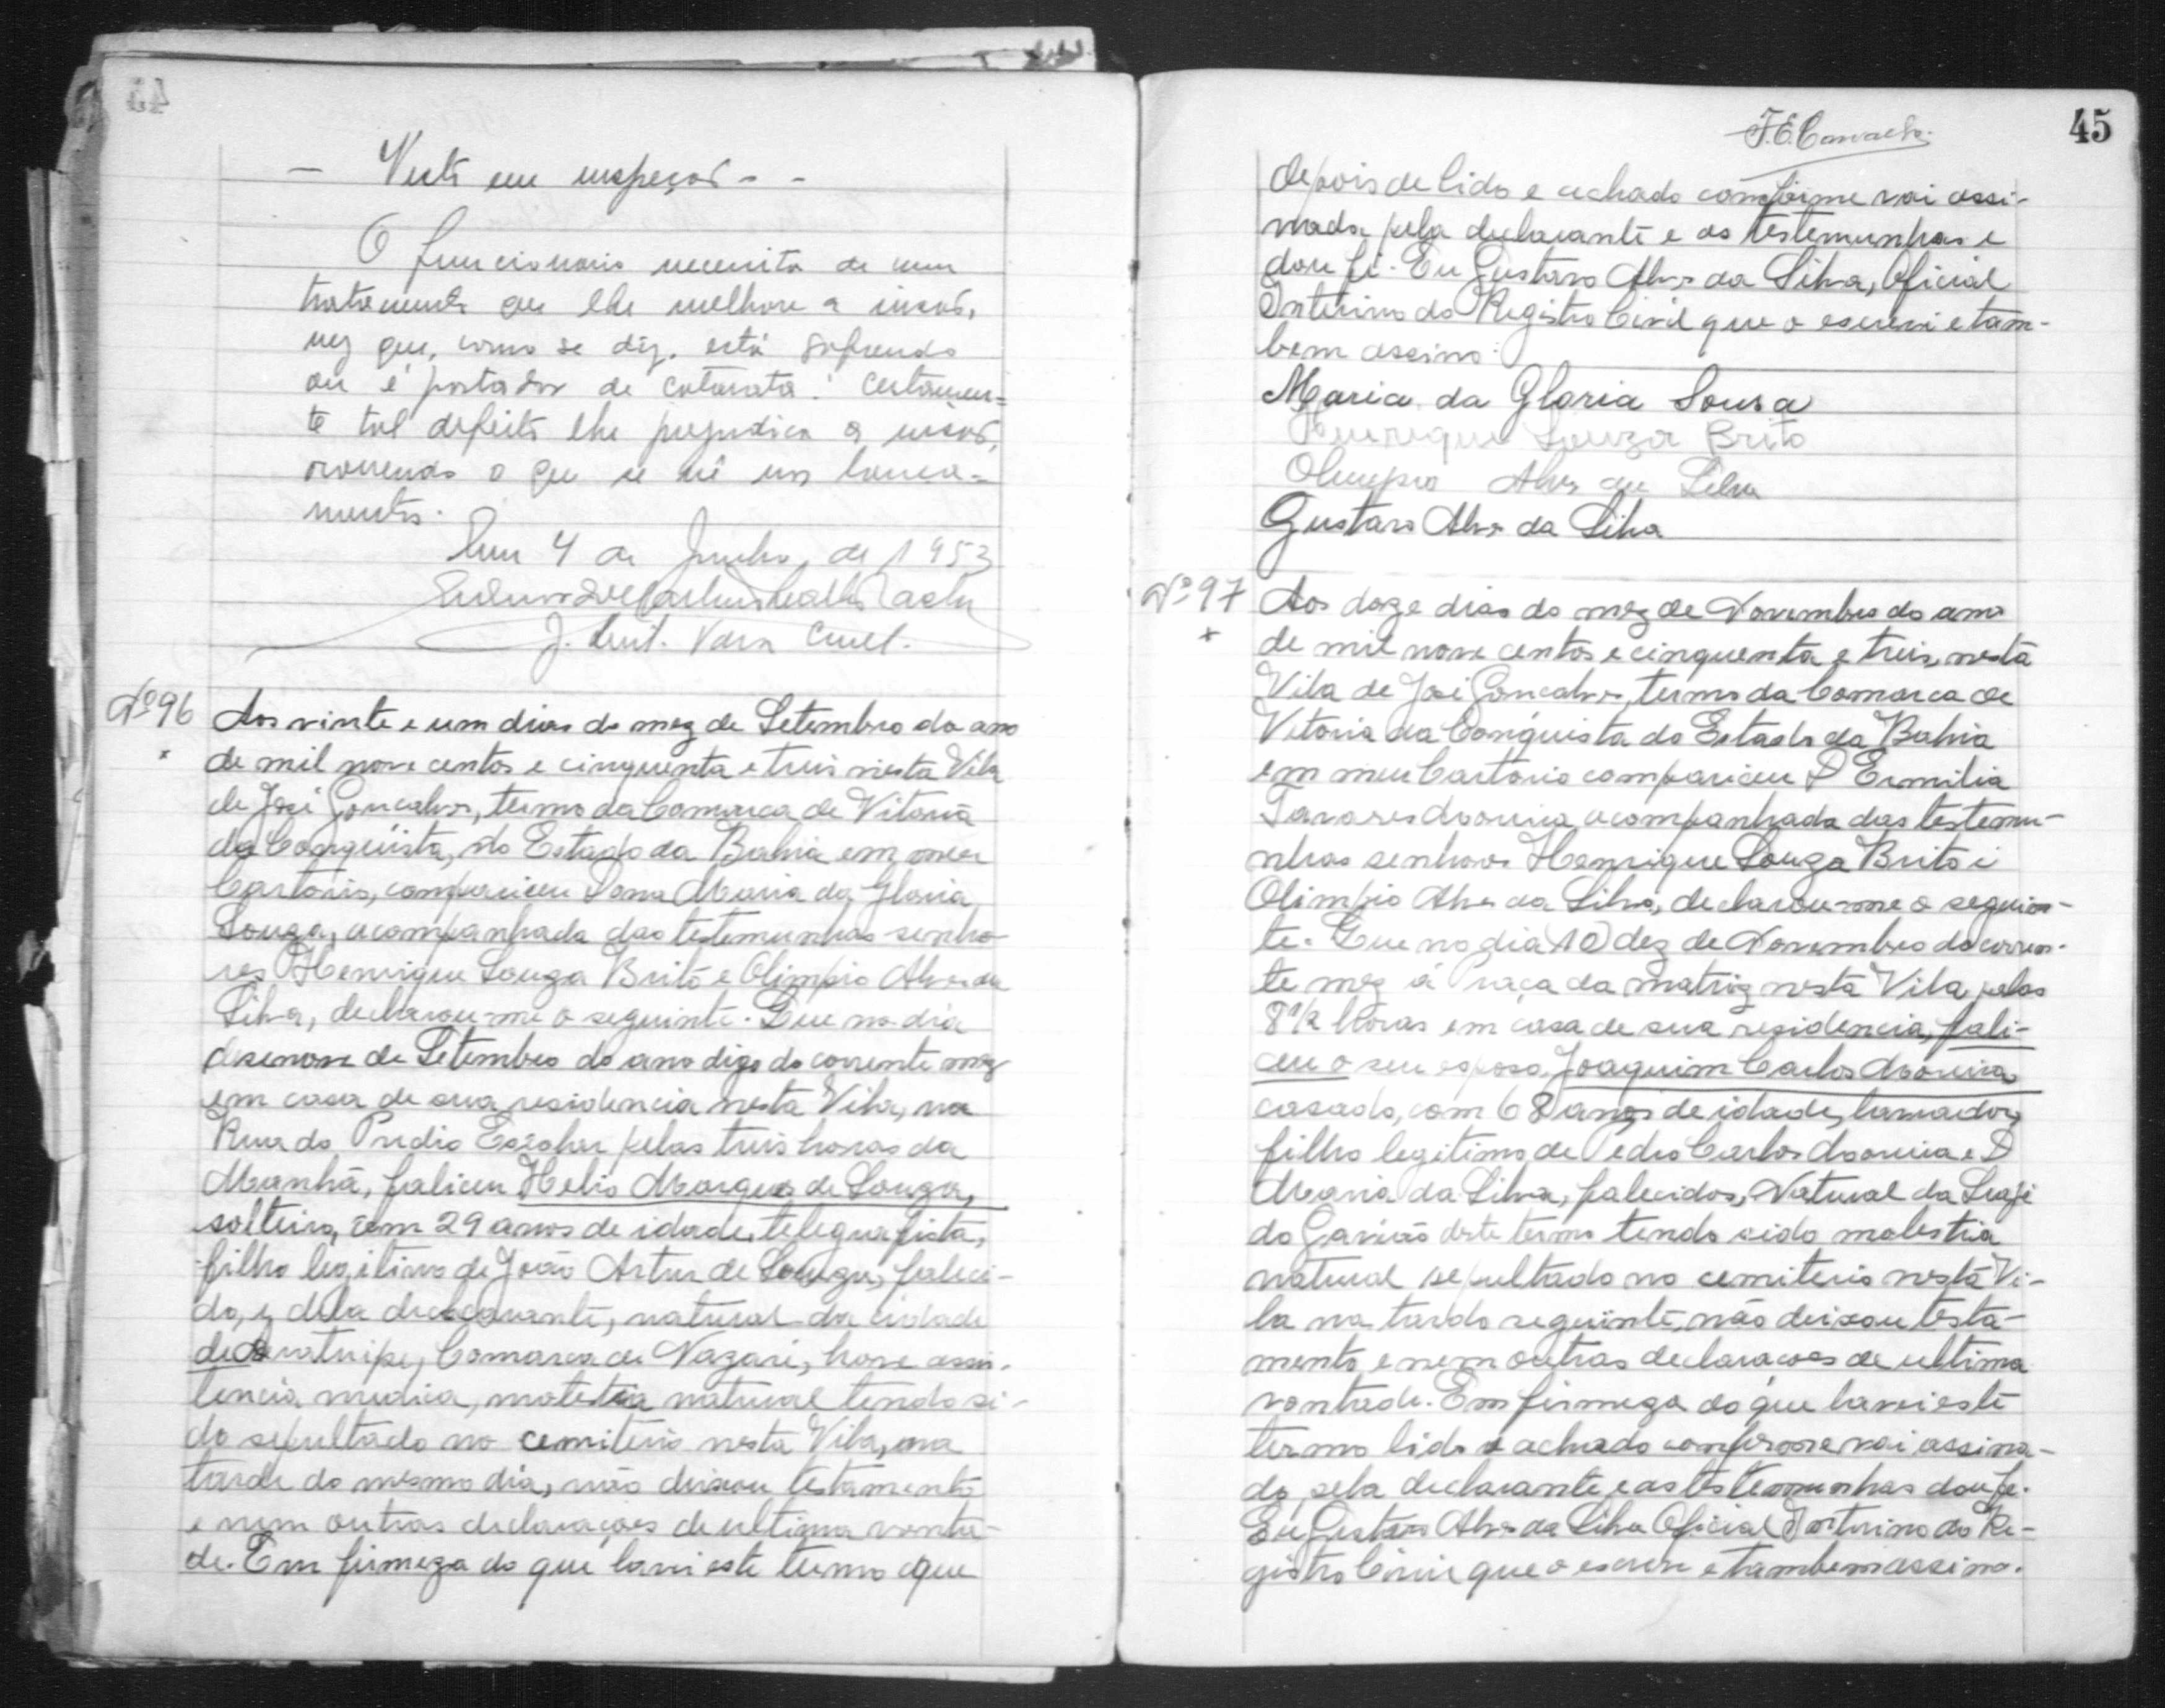 — Visto em inspeção - -
O funcionario necessita de um
tratamento que lhe melhore a visão,
vez que, como se diz, está sofrendo
ou é portador de catarata. Certamen=
te tal defeito lhe prejudica a visão,
ocorrendo o que se vê nos lança=
mentos.
Em 4 de Junho de 1953
J.
Nº 96
Aos vinte e um dias do mez de Setembro do ano
de mil nove centos e cinquenta e treis nesta Vila
de José Gonçalves, termo da Comarca de Vitoria
da Conquista, do Estado da Bahia em meu
Cartorio, compariceu Dona Maria da Gloria
Souza, acompanhada das testemunhas senho-
res Henrique Souza Brito e Olimpio Alves da
Silva, declarou-me o seguinte. Que no dia
desenove de Setembro do ano digo do corrente mez
em casa de sua residencia nesta Vila, na
Rua do Predio Escolar pelas treis horas da
Manhã, faliceu Helio Marques de Souza,
solteiro, com 29 anos de idade, telegrafista,
filho legitimo de João Artur de Souza, faleci-
do, e dela declarante, natural da cidade
de Aratuipe, Comarca de Nazaré, hove assis-
tencia medica, molestia natural tendo si-
do sepultado no cemiterio nesta Vila, na
tarde do mesmo dia, não deixou testamento
e nem outras declarações de ultima vonta-
de. Em firmeza do que lavrei este termo que
45
F. E. Carvalho
depois de lido e achado conforme vai assi-
nada pela declarante e as testemunhas e
dou fé. Eu Gustavo Alves da Silva, Oficial
Interino do Registro Civil que o escrevi e tam-
bem assino:
Maria da Gloria Sousa
Henrique Souza Brito
Olimpio Alves da Silva
Gustavo Alves da Silva
Nº 97
Aos doze dias do mez de Novembro do ano
de mil nove centos e cinquenta e treis, nesta
Vila de José Gonçalves, termo da Comarca de
Vitoria da Conquista do Estado da Bahia
em meu Cartorio compariceu D Ermilia
Tavares Moreira acompanhada das testemu-
nhas senhores Henrique Souza Brito e
Olimpio Alves da Silva, declarou-me o seguin-
te. Que no dia (10) dez de Novembro do corren-
te mez á Praça da matriz nesta Vila pelas
8 1/2 horas em casa de sua residencia, fali-
ceu o seu esposo, Joaquim Carlos Moreira
casado, com 68 anos de idade, lavrador,
filho legitimo de Pedro Carlos Moreira e D
Maria da Silva, falecidos, Natural da
do Gavião deste termo tendo sido molestia
natural sepultado no cemiterio nesta Vi-
la na tarde seguinte, não deixou testa-
mento e nem outras declaracoes de ultima
vontade. Em firmeza do que lavrei este
termo lido e achado conforme vai assina-
do pela declarante e as testemunhas dou fe.
Eu Gustavo Alves da Silva Oficial Interino do Re-
gistro Civil que o escrevi e tambem assino.